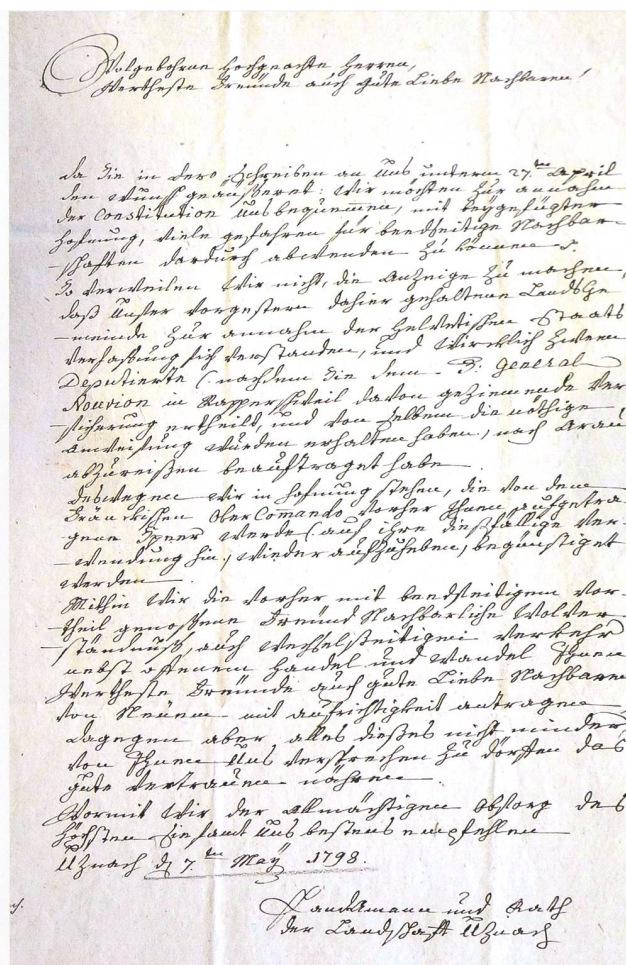 Wolgebohrne Hochgeachte Herren,
Wertheste Freünde auch gute Liebe Nachbaren!
da Sie in dero Schreiben an Uns unterm 27.ten April
den Wunsch geäusseret: Wir möchten zur annahm
der Constitution Uns bequemen, mit beygefügter
Hofnung, viele gefahren für beedseitige Nachbar-
-schaften dardurch abwenden zu können
So verweilen Wir nicht, die Anzeige zu machen,
daß Unser vorgestern dahier gehaltene Landsge
-meinde zur annahm der Helvetischen Staats
verfassung sich verstanden, und Wircklich zween
Deputierte (nachdem Sie dem B: General
Nouvion in Rapperschweil davon geziemende Ver
-sicherung ertheilt, und von selbem die nöthige
Anweisung wurden erhalten haben) nach Arau
abzureisen beauftraget habe
Deswegen Wir in Hofnung stehen, die von dem
Fränckischen OberComando vorher Ihnen aufgetra
gene Speer werde (auf ihre diesfällige Ver-
-wendung hin) wieder aufzuheben, begünstiget
werden
Mithin Wir die vorher mit beedseitigem vor-
-theil genossene Freünd Nachbarliche Wolver
-ständnuß, auch wechselseitigen Verkehr
nebst offenem Handel und Wandel Ihnen
Wertheste Freünde auch gute Liebe Nachbaren
von Neüem mit aufrichtigkeit antragen
dagegen aber alles dieses nicht minder
von Ihnen Uns versprechen zu dörffen das
gute Vertrauen nähren
Wormit Wir der Allmächtigen Obsorg des
Höchsten Sie samt Uns bestens empfehlen
Uznach d 7.ten May 1798.
Landammann und Rath
der Landschaft Uznach